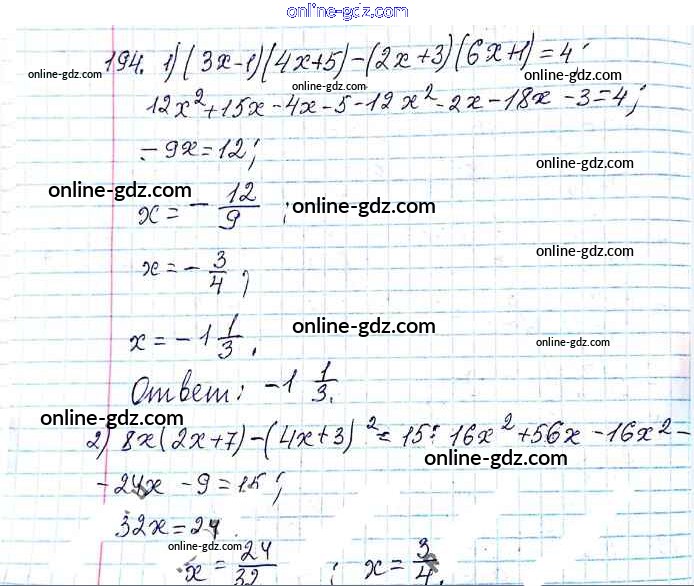 online-gdz.com
194. 1) (3x-1)(4x+5)-(2x+3)(6x+1)=4;
online-gdz.com online-gdz.com online-gdz.com
12x²+15x-4x-5-12x²-2x-18x-3=4;
-9x=12; online-gdz.com
online-gdz.com
x=-12/9; online-gdz.com
x=-3/4; online-gdz.com
x=-1 1/3. online-gdz.com online-gdz.com
Ответ: -1 1/3.
online-gdz.com
2) 8x(2x+7)-(4x+3)²=15: 16x²+56x-16x²-
online-gdz.com
-24x-9=15;
32x=24
online-gdz.com
x=24/32; x=3/4.
online-gdz.com